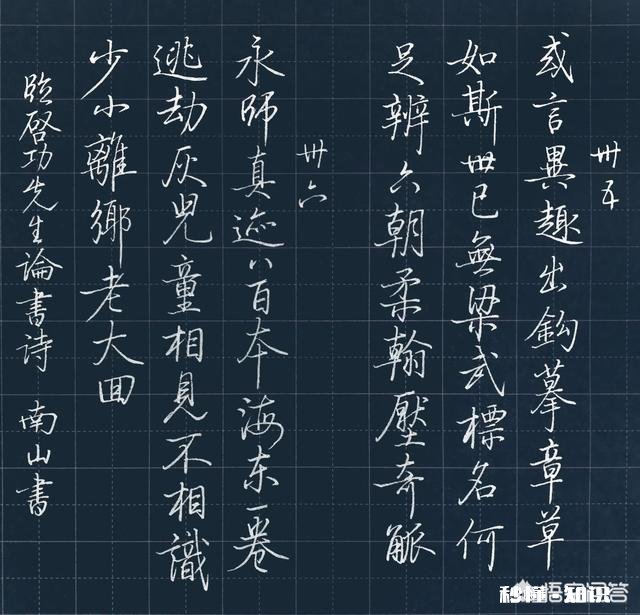 卅五
或言異趣出鈎摹章草
如斯世已無梁武標名何
足辨六朝柔翰壓奇觚
卅六
永師真迹八百本海东一卷
逃劫灰児童相見不相識
少小離鄉老大回
臨啓功先生論書诗 南山書
悟空问答
秒懂知识